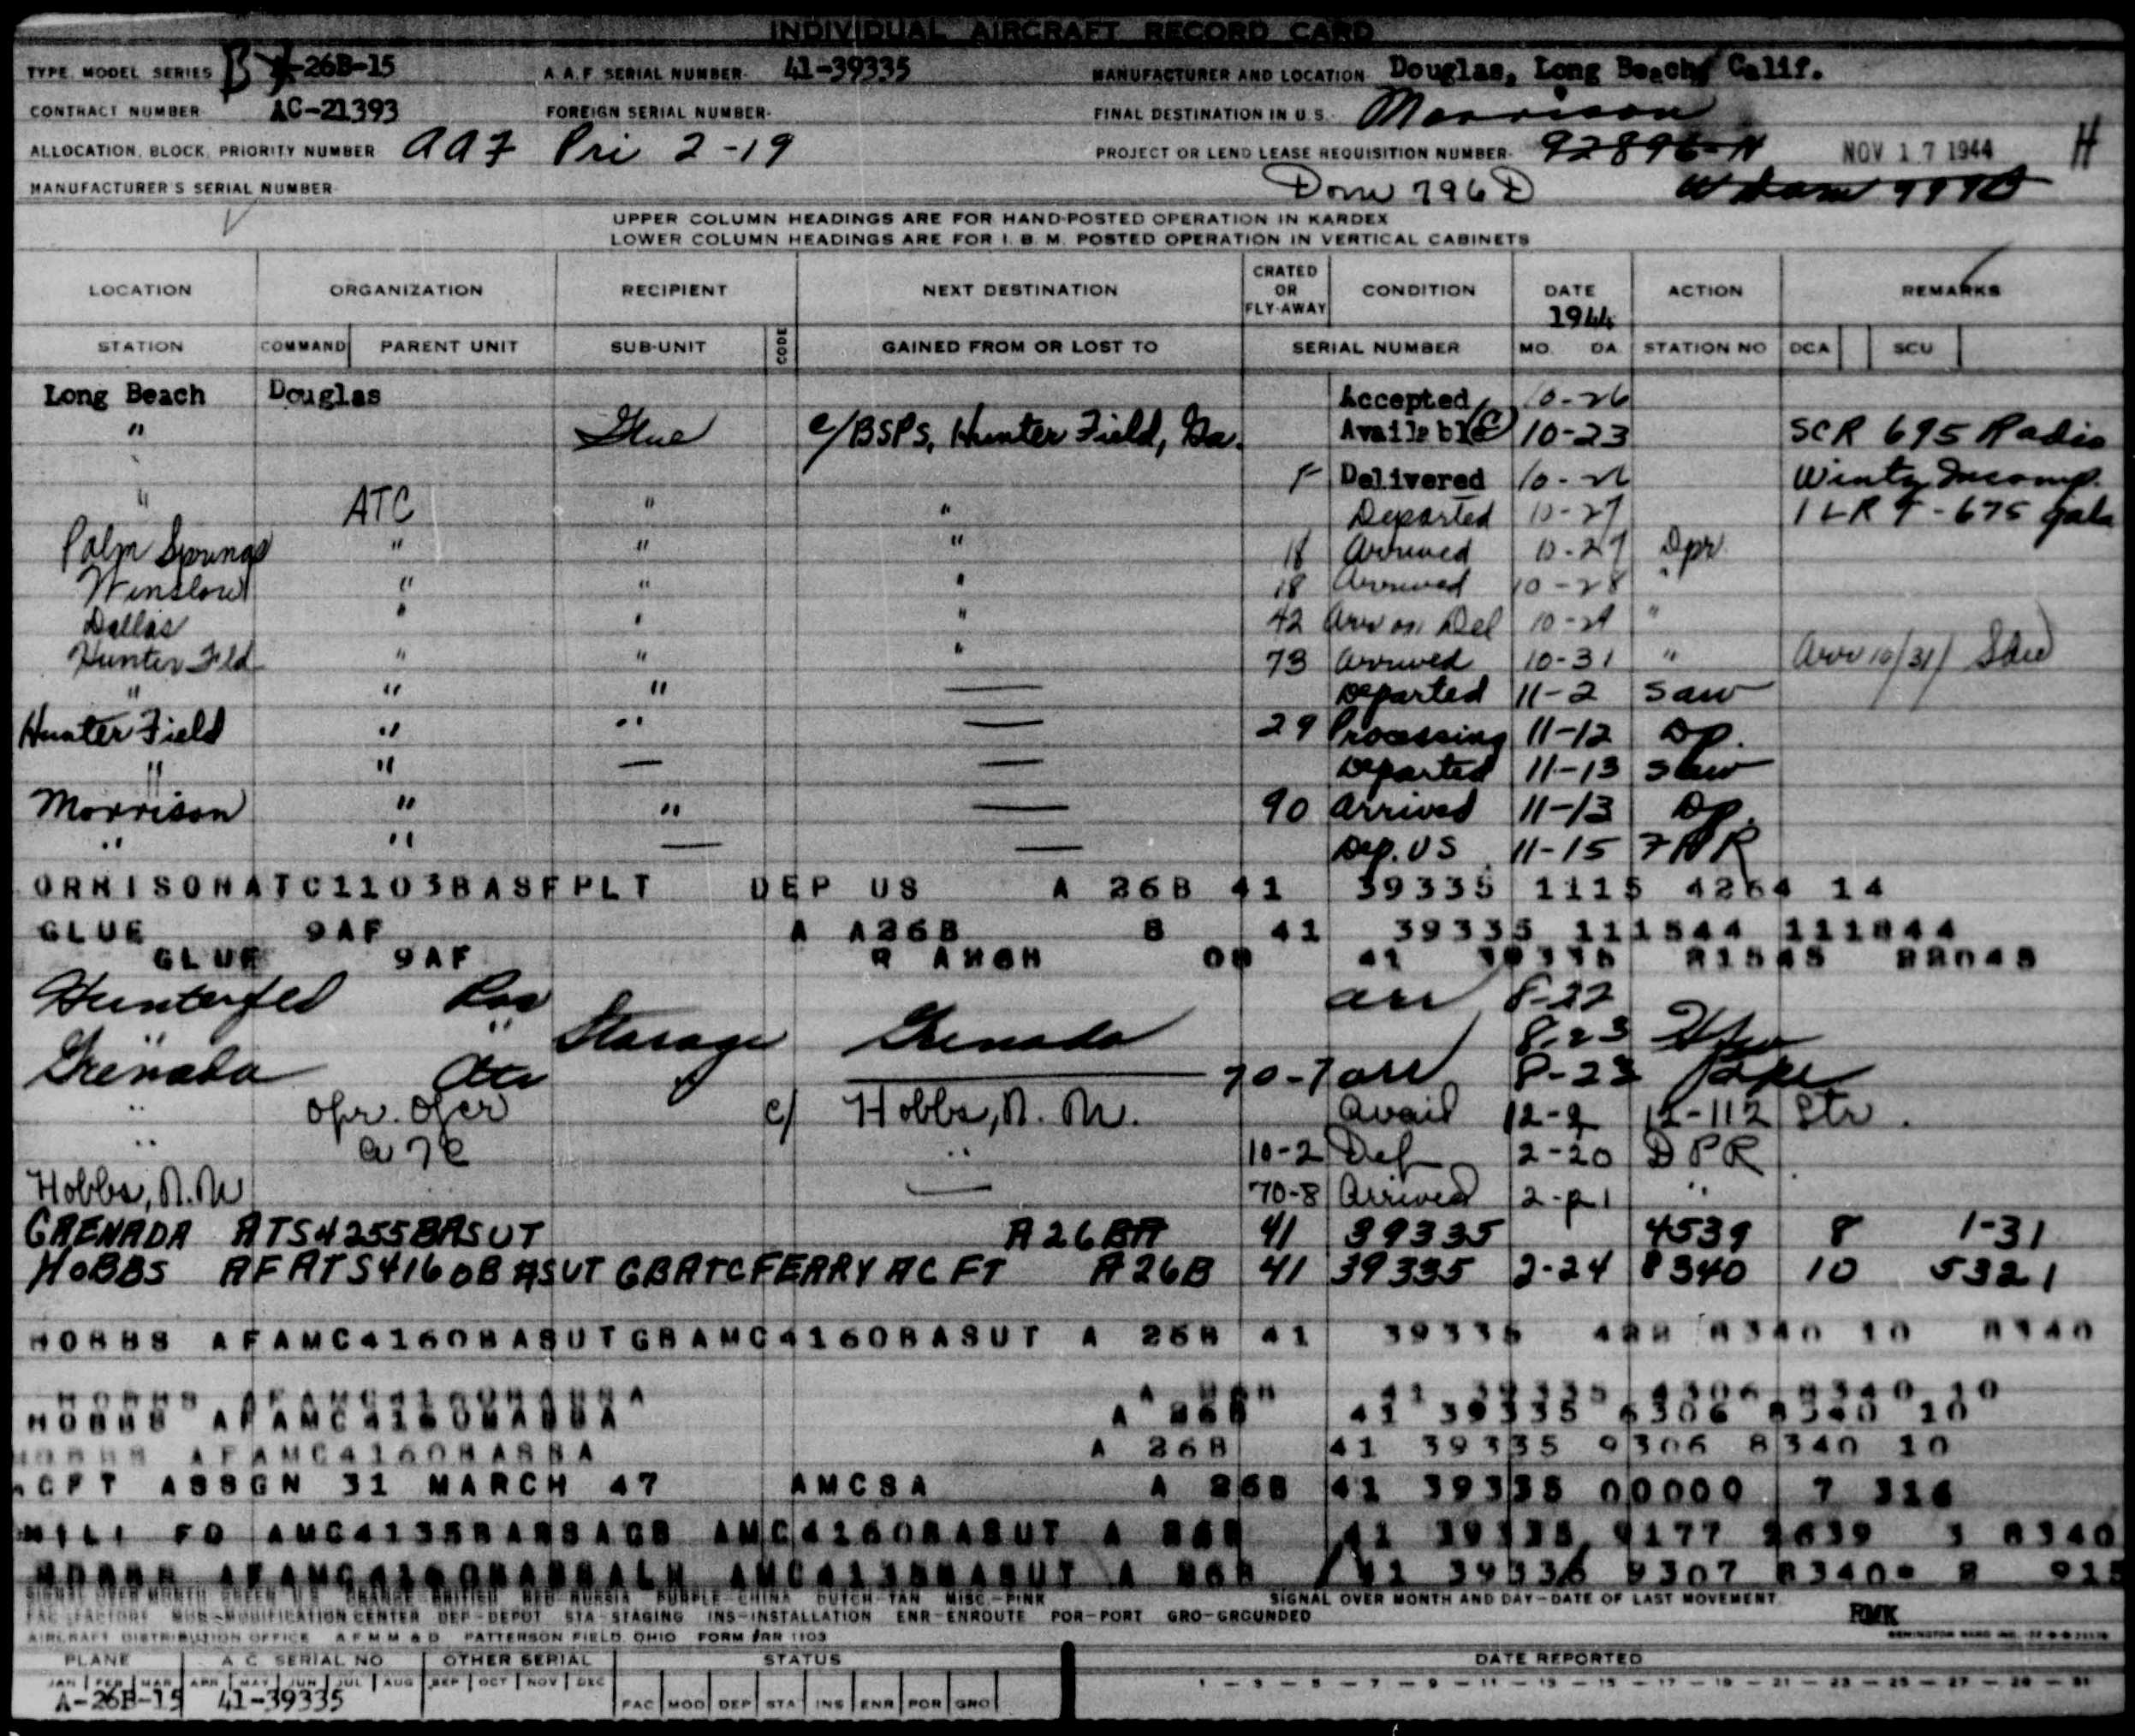 INDIVIDUAL AIRCRAFT RECORD CARD
TYPE MODEL SERIES B -26B-15 A.A.F. SERIAL NUMBER 41-39335 MANUFACTURER AND LOCATION Douglas, Long Beach, Calif.
CONTRACT NUMBER AC-21393 FOREIGN SERIAL NUMBER FINAL DESTINATION IN U.S. Morrison
ALLOCATION, BLOCK, PRIORITY NUMBER AAF Pri 2-19 PROJECT OR LEND LEASE REQUISITION NUMBER 92896-N NOV 17 1944 H
MANUFACTURER'S SERIAL NUMBER Dom 796D
UPPER COLUMN HEADINGS ARE FOR HAND-POSTED OPERATION IN KARDEX
LOWER COLUMN HEADINGS ARE FOR I. B. M. POSTED OPERATION IN VERTICAL CABINETS
LOCATION ORGANIZATION RECIPIENT NEXT DESTINATION CRATED OR FLY-AWAY CONDITION DATE 1944 ACTION REMARKS
STATION COMMAND PARENT UNIT SUB-UNIT CODE GAINED FROM OR LOST TO SERIAL NUMBER MO. DA. STATION NO DCA SCU
Long Beach Douglas Accepted 10-26
" Glue c/BSPS, Hunter Field, Ga. Available (C) 10-23 SCR 695 Radio
F Delivered 10-26 Wintz Incomp.
" ATC " " Departed 10-27 1 LR T-675 gals
Palm Springs " " " 18 Arrived 10-27 Dpr
Winslow " " " 18 Arrived 10-28 "
Dallas " " " 42 Arr on Del 10-29 "
Hunter Fld " " " 73 Arrived 10-31 " Arr 10/31/
" " " — Departed 11-2 Saw
Hunter Field " " — 29 Processing 11-12 Dp.
" " — — Departed 11-13 Saw
Morrison " " — 90 Arrived 11-13 Dp.
" " — — Dep. US 11-15
ORRISONATC1103BASFPLT DEP US A 26B 41 39335 1115 4264 14
GLUE 9AF A A26B B 41 39335 111544 111844
GLUE 9AF 41 39335 81545 82045
Hunterfld arr 8-22
" " Storage Grenada 8-23
Grenada Atc 70-7 arr 8-23
" Opr. Ofcr c/ Hobbs, N. M. Avail 12-2 12-112 Str.
" ATC " 10-2 Def 2-20 DPR
Hobbs, N.M — 70-8 Arrived 2-21 "
GRENADA ATS4255BASUT A26BA 41 39335 4539 8 1-31
HOBBS AFATS4160BASUT GBATCFERRY ACFT A26B 41 39335 2-24 8340 10 5321
HOBBS AFAMC4160BASUTGBAMC4160BASUT A 26B 41 39335 8340 10 8340
HOBBS AFAMC4160BASBA A 26B 41 39335 6306 8340 10
HOBBS AFAMC4160BASBA A 26B 41 39335 9306 8340 10
ACFT ASSGN 31 MARCH 47 AMCSA A 26B 41 39335 00000 7 316
HILL FD AMC4135BASSAGB AMC4160BASUT A 26B 41 39335 9177 2639 3 8340
HOBBS AFAMC4160BASSALH AMC4135BASUT A 26B 41 39335 9307 8340 915
SIGNAL OVER MONTH AND DAY—DATE OF LAST MOVEMENT
FAC-FACTORY MOD-MODIFICATION CENTER DEP-DEPOT STA-STAGING INS-INSTALLATION ENR-ENROUTE POR-PORT GRO-GROUNDED RMK
AIRCRAFT DISTRIBUTION OFFICE A F M M & D PATTERSON FIELD, OHIO FORM ARR 1103
PLANE A C SERIAL NO OTHER SERIAL STATUS DATE REPORTED
JAN FEB MAR APR MAY JUN JUL AUG SEP OCT NOV DEC 1 - 3 - 5 - 7 - 9 - 11 - 13 - 15 - 17 - 19 - 21 - 23 - 25 - 27 - 29 - 31
A-26B-15 41-39335 FAC MOD DEP STA INS ENR POR GRO